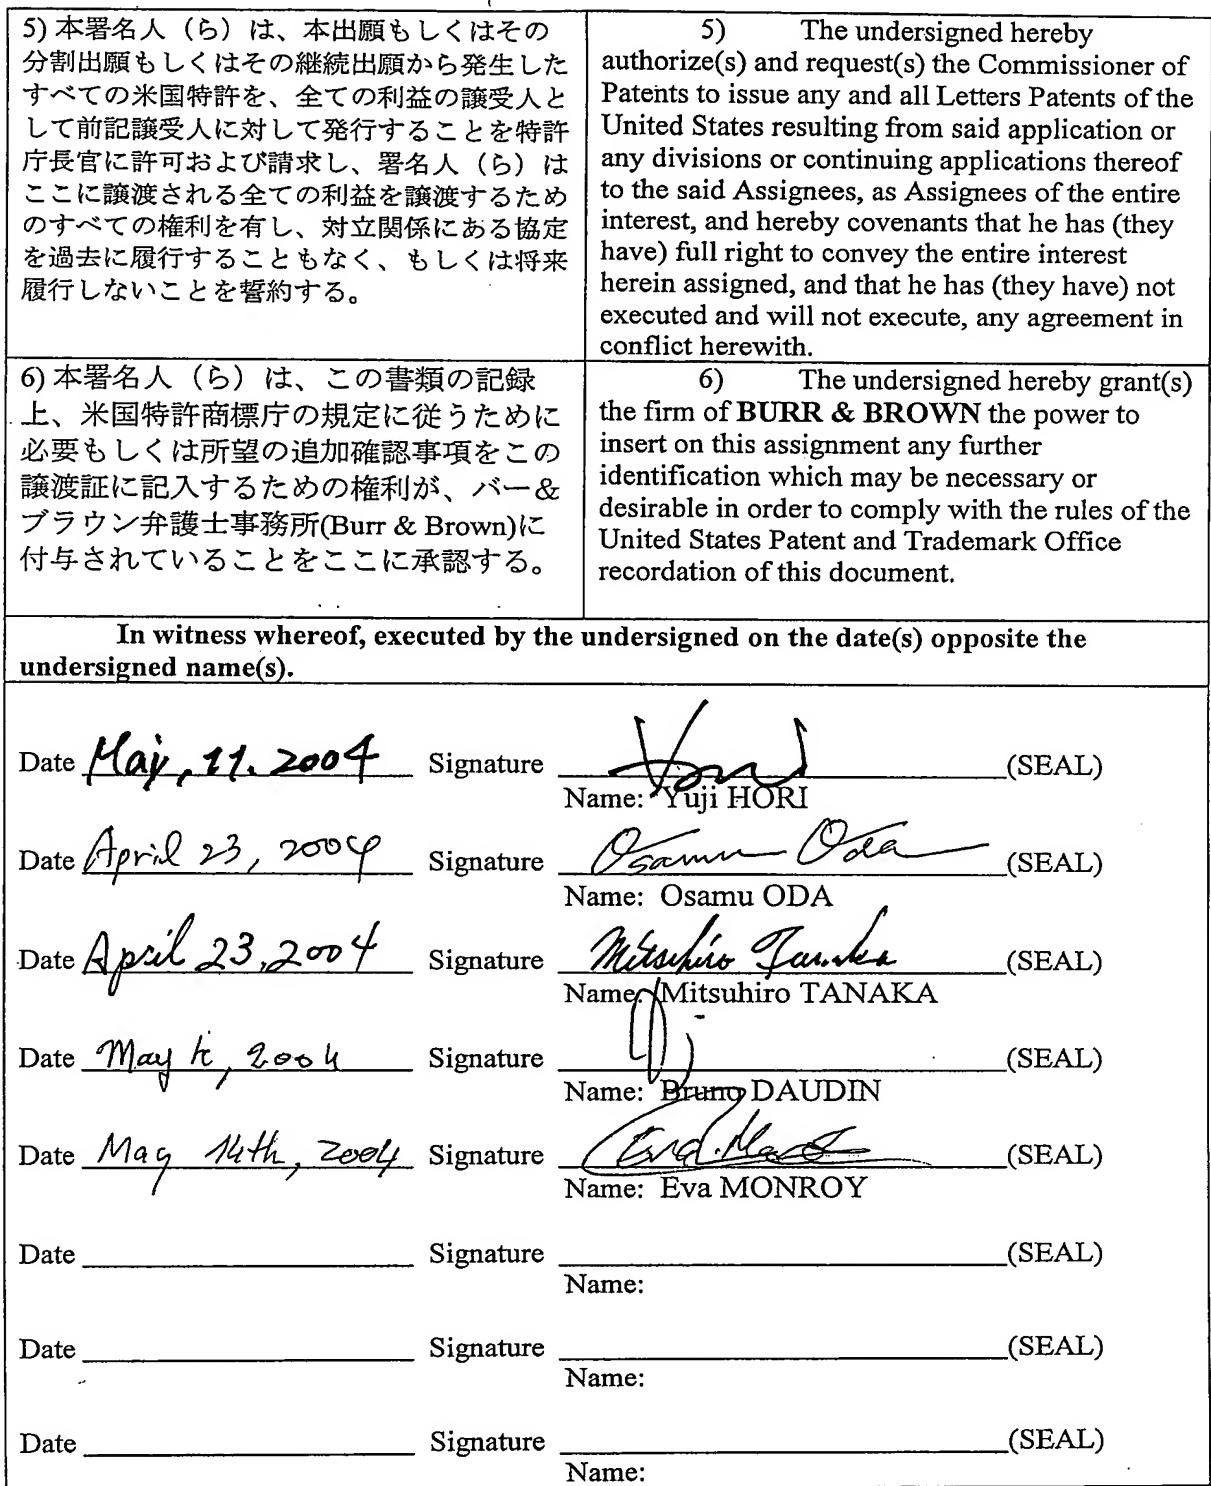 5) 本署名人（ら）は、本出願もしくはその
分割出願もしくはその継続出願から発生した
すべての米国特許を、全ての利益の譲受人と
して前記譲受人に対して発行することを特許
庁長官に許可および請求し、署名人（ら）は
ここに譲渡される全ての利益を譲渡するため
のすべての権利を有し、対立関係にある協定
を過去に履行することもなく、もしくは将来
履行しないことを誓約する。
5) The undersigned hereby
authorize(s) and request(s) the Commissioner of
Patents to issue any and all Letters Patents of the
United States resulting from said application or
any divisions or continuing applications thereof
to the said Assignees, as Assignees of the entire
interest, and hereby covenants that he has (they
have) full right to convey the entire interest
herein assigned, and that he has (they have) not
executed and will not execute, any agreement in
conflict herewith.
6) 本署名人（ら）は、この書類の記録
上、米国特許商標庁の規定に従うために
必要もしくは所望の追加確認事項をこの
譲渡証に記入するための権利が、バー＆
ブラウン弁護士事務所(Burr & Brown)に
付与されていることをここに承認する。
6) The undersigned hereby grant(s)
the firm of BURR & BROWN the power to
insert on this assignment any further
identification which may be necessary or
desirable in order to comply with the rules of the
United States Patent and Trademark Office
recordation of this document.
In witness whereof, executed by the undersigned on the date(s) opposite the
undersigned name(s).
Date May, 11. 2004 Signature (SEAL)
Name: Yuji HORI
Date April 23, 2004 Signature Osamu Oda (SEAL)
Name: Osamu ODA
Date April 23, 2004 Signature Mitsuhiro Tanaka (SEAL)
Name: Mitsuhiro TANAKA
Date May , 2004 Signature (SEAL)
Name: Bruno DAUDIN
Date May 14th, 2004 Signature Eva (SEAL)
Name: Eva MONROY
Date Signature (SEAL)
Name:
Date Signature (SEAL)
Name:
Date Signature (SEAL)
Name: